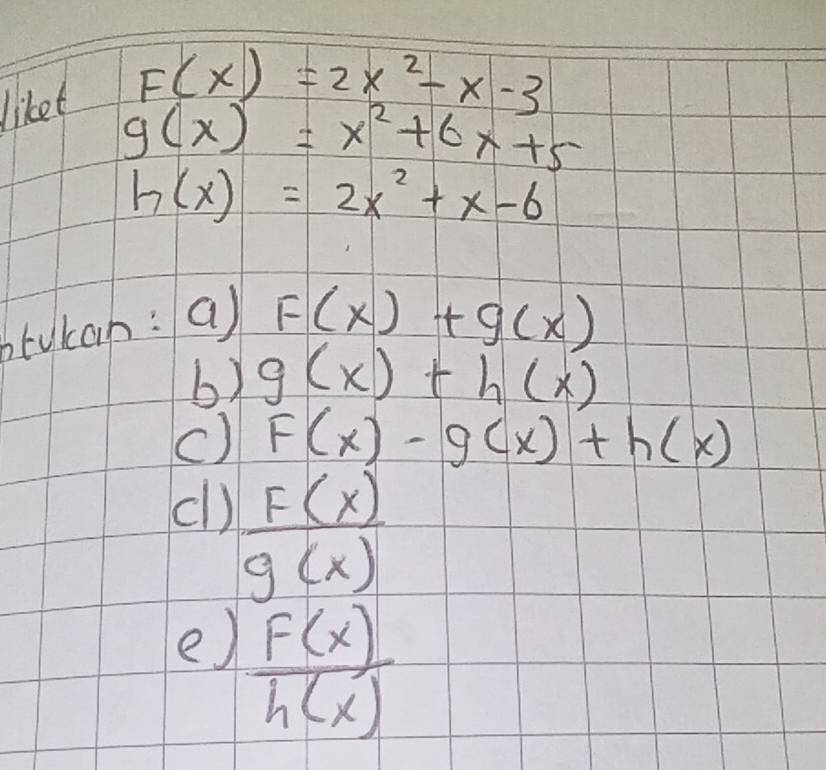 F(x) = 2x² - x - 3
g(x) = x² + 6x + 5
h(x) = 2x² + x - 6
a) F(x) + g(x)
b) g(x) + h(x)
c) F(x) - g(x) + h(x)
d) F(x)
g(x)
e) F(x)
h(x)